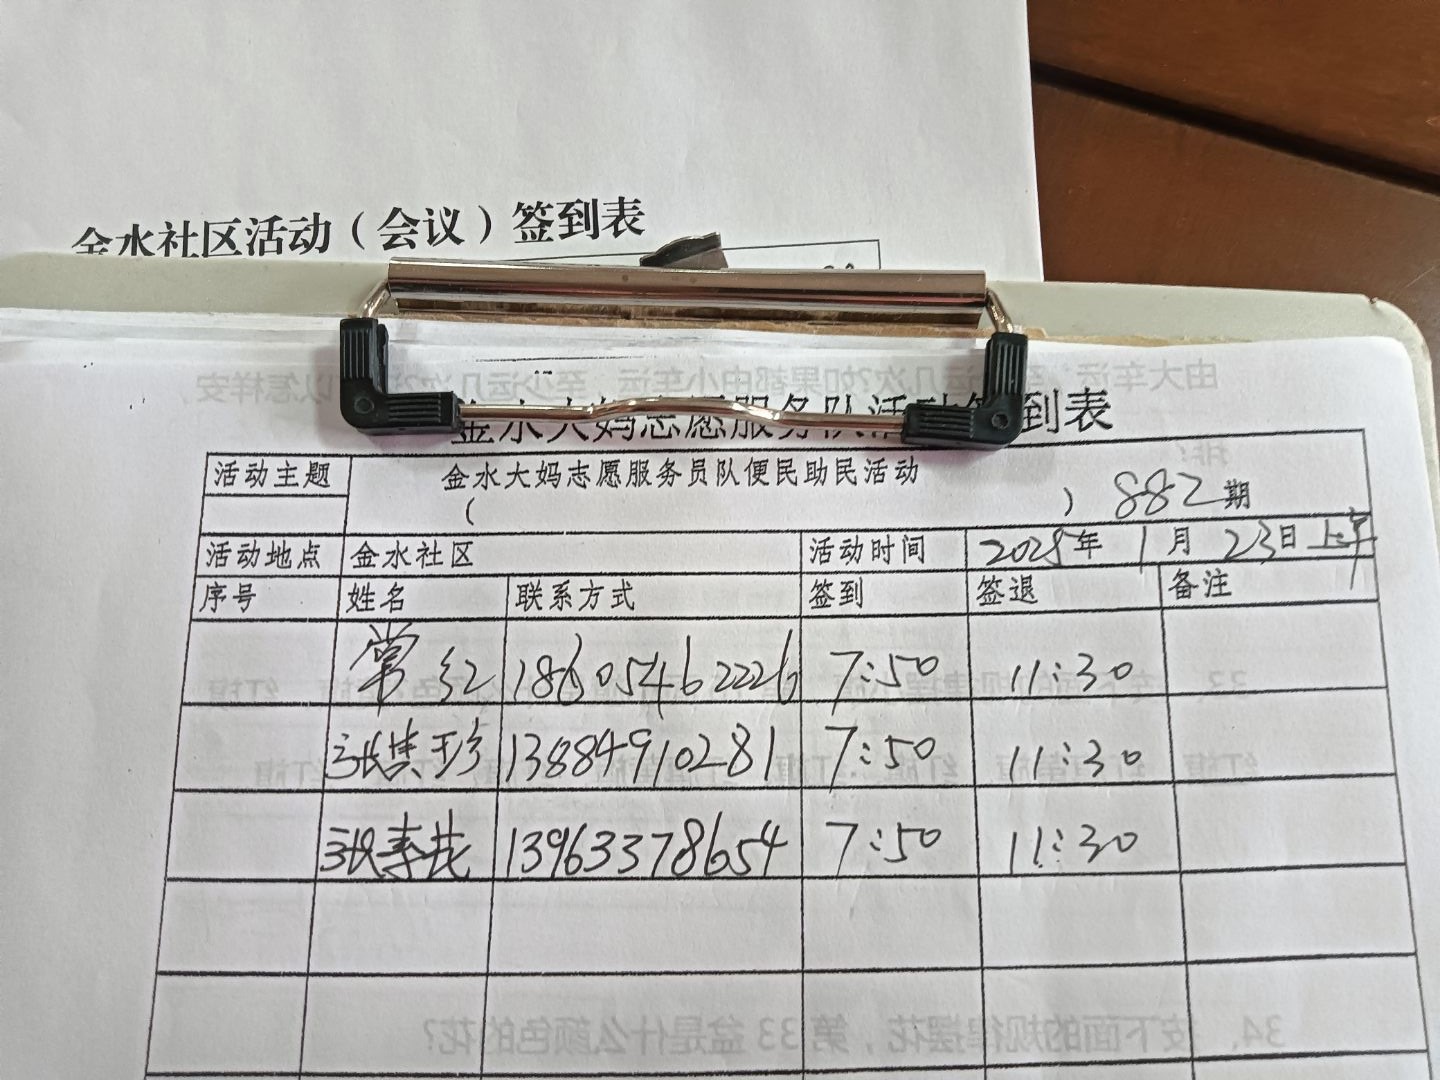 金水社区活动（会议）签到表
金水大妈志愿服务队活动签到表
活动主题 金水大妈志愿服务员队便民助民活动
（ ） 882期
活动地点 金水社区 活动时间 2025年1月23日上午
序号 姓名 联系方式 签到 签退 备注
常红 18605462226 7:50 11:30
张其珍 13884910281 7:50 11:30
张春花 13963378654 7:50 11:30
34、按下面的规律摆花，第33盆是什么颜色的花？